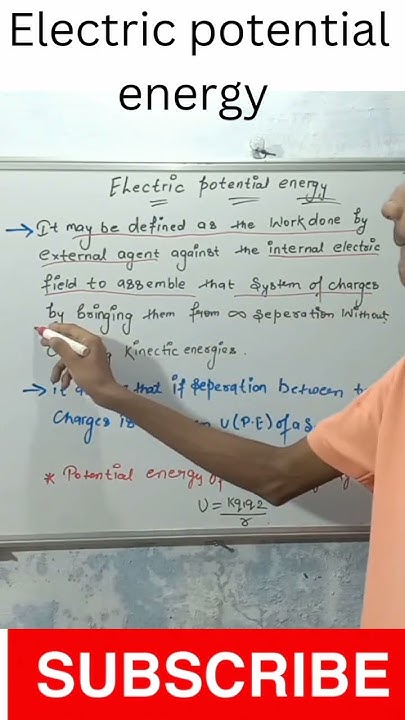 Electric potential
energy
Electric potential energy
→ It may be defined as the Workdone by
external agent against the internal electric
field to assemble that System of charges
by bringing them from ∞ seperation Without
Kinectic energies.
→ It that if seperation between
Charges is U(P.E) of a S
* Potential energy of
U = Kq1q2/r
SUBSCRIBE